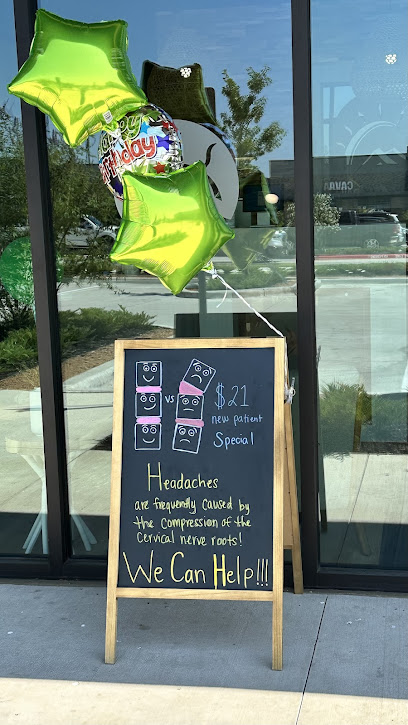 Happy
Birthday
CAVA
vs
$21
new patient
Special
Headaches
are frequently caused by
the compression of the
cervical nerve roots!
We Can Help!!!